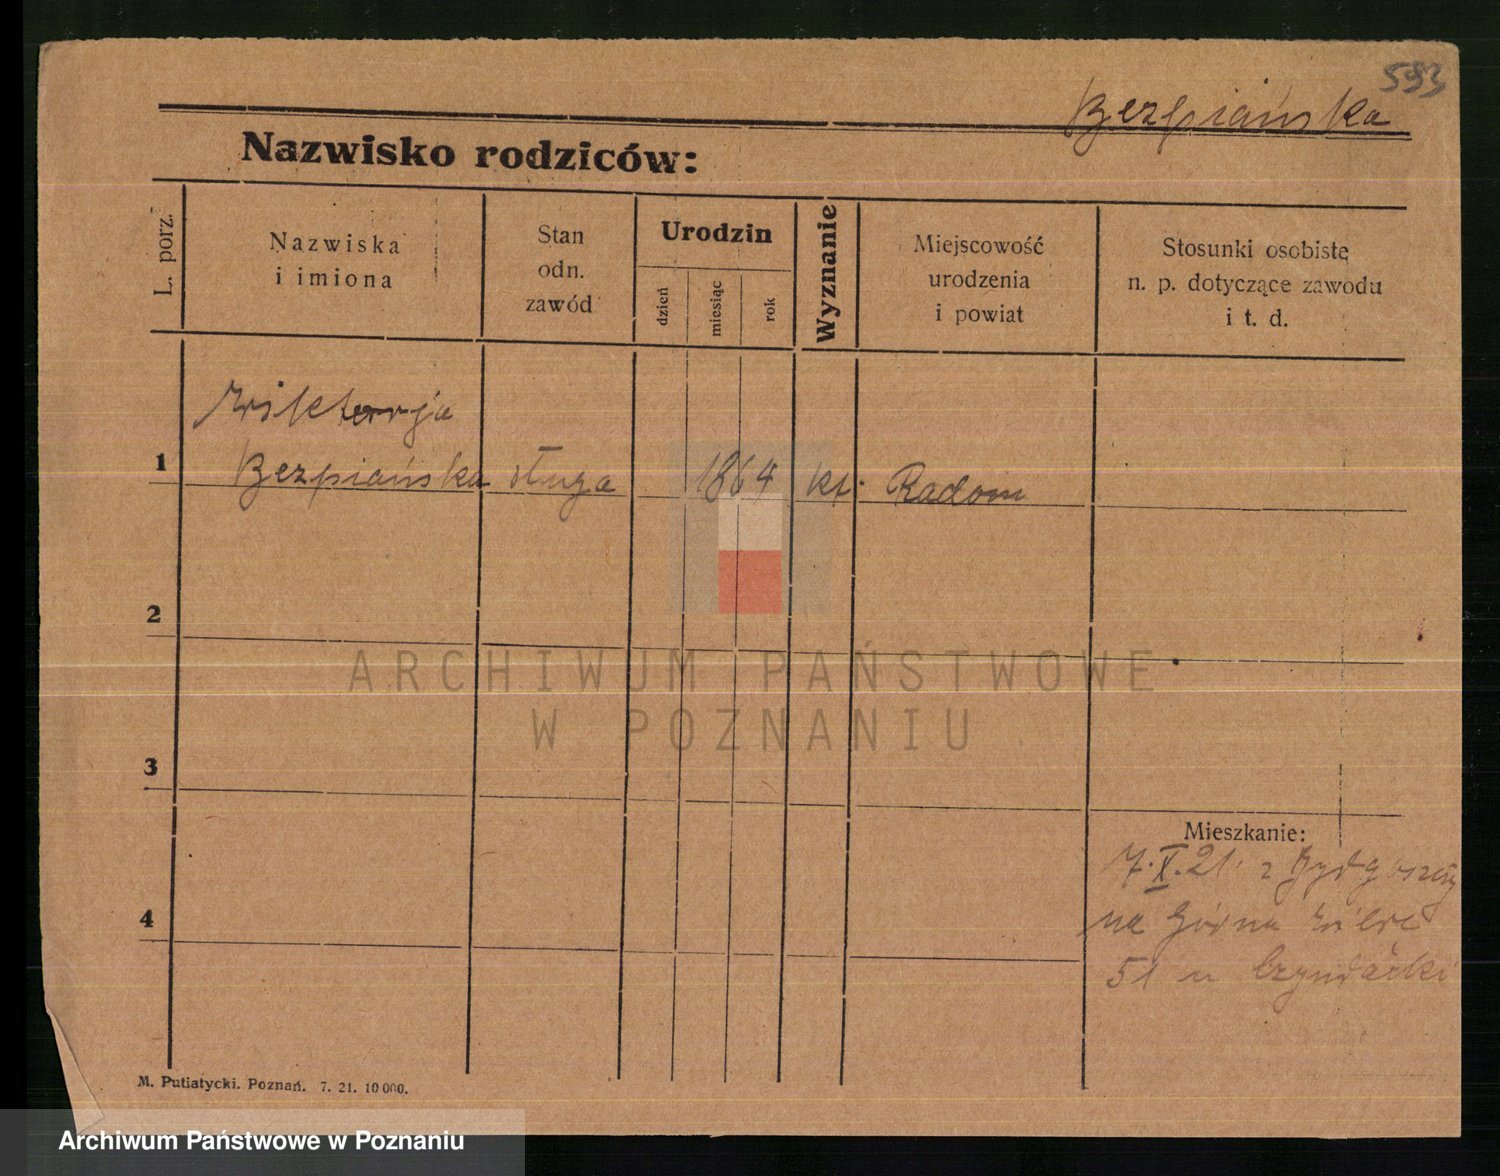 593
Bezpiańska
Nazwisko rodziców:
L. porz.
Nazwiska
i imiona
Stan
odn.
zawód
Urodzin
dzień
miesiąc
rok
Wyznanie
Miejscowość
urodzenia
i powiat
Stosunki osobiste
n. p. dotyczące zawodu
i t. d.
Wiktorja
1 Bezpiańska sługa 1864 kt. Radom
2
ARCHIWUM PAŃSTWOWE
W POZNANIU
3
Mieszkanie:
7.X.21 z Bydgoszczy
4
na Górna
51 u
M. Putiatycki. Poznań. 7. 21. 10 000.
Archiwum Państwowe w Poznaniu